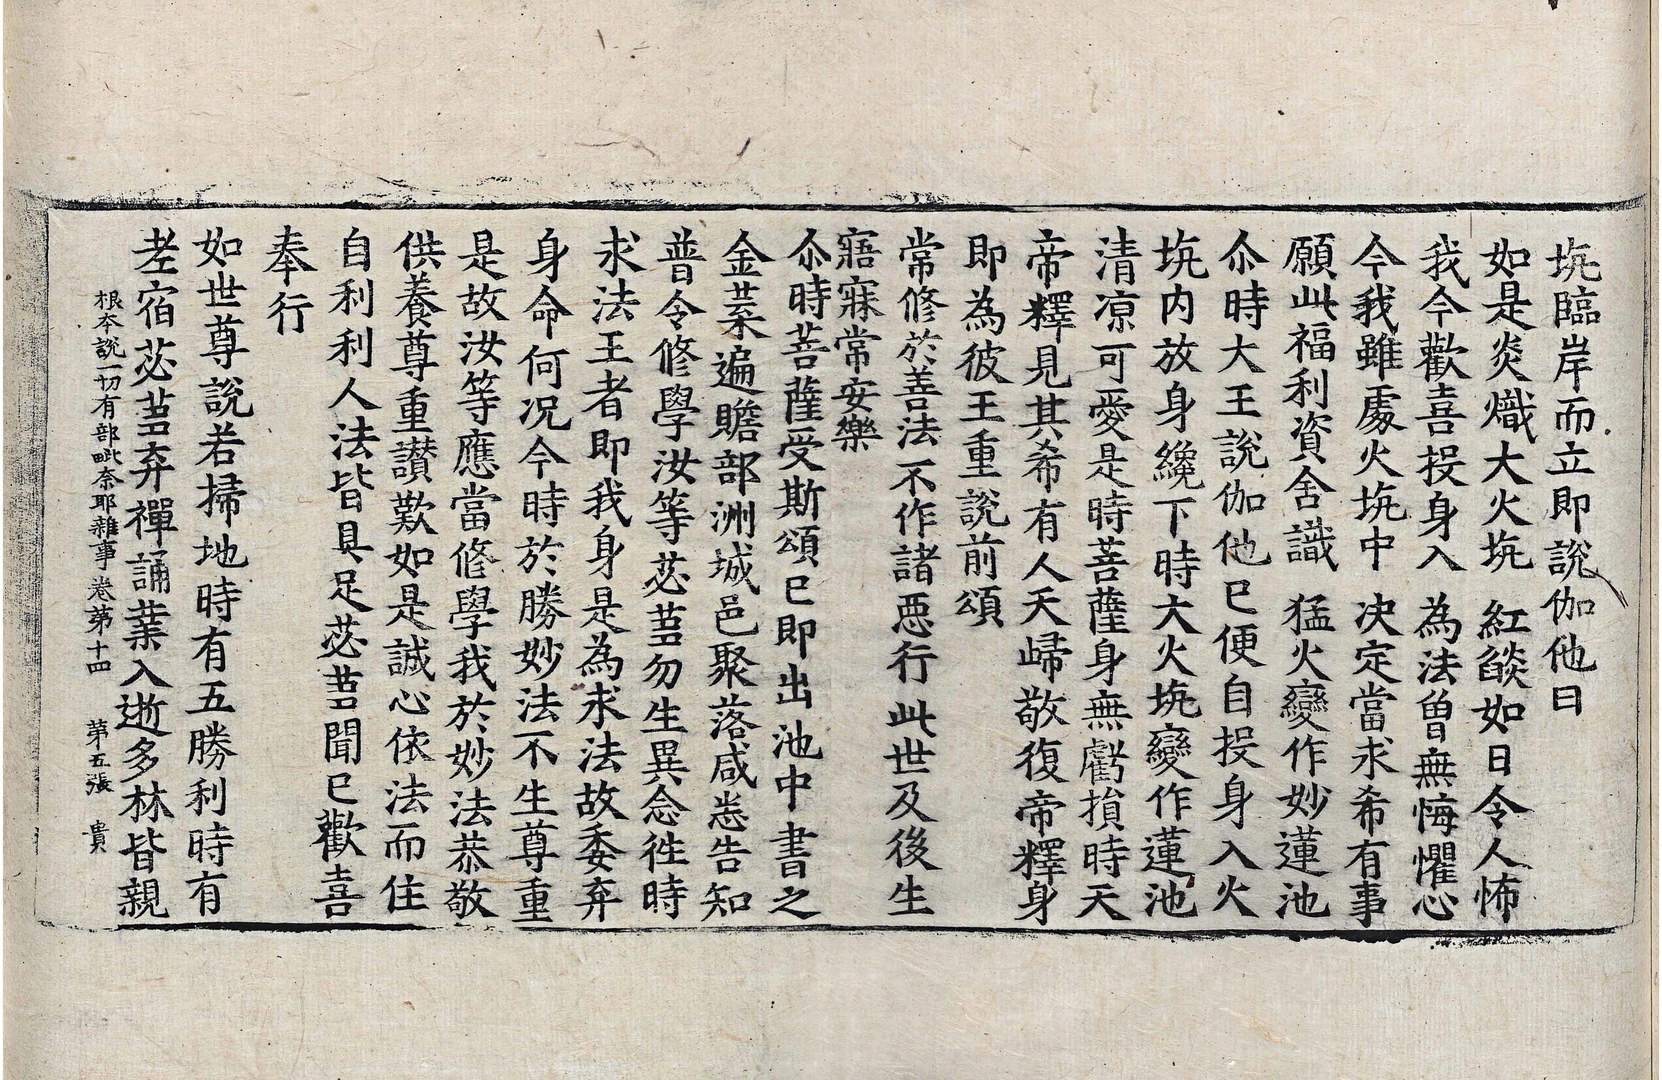 坑臨岸而立即說伽他曰
如是炎熾大火坑 紅燄如日令人怖
我今歡喜投身入 為法曾無悔懼心
今我雖處火坑中 决定當求希有事
願此福利資含識 猛火變作妙蓮池
尒時大王說伽他已便自投身入火
坑内放身纔下時大火坑變作蓮池
清凉可愛是時菩薩身無虧損時天
帝釋見其希有人天歸敬復帝釋身
即為彼王重說前頌
常修於善法 不作諸惡行 此世及後生
寤寐常安樂
尒時菩薩受斯頌已即出池中書之
金葉遍贍部洲城邑聚落咸悉告知
普令修學汝等苾芻勿生異念徃時
求法王者即我身是為求法故委弃
身命何况今時於勝妙法不生尊重
是故汝等應當修學我於妙法恭敬
供養尊重讃歎如是誠心依法而住
自利利人法皆具足苾芻聞已歡喜
奉行
如世尊說若掃地時有五勝利時有
老宿苾芻弃禪誦業入逝多林皆親
根本說一切有部毗奈耶雜事卷第十四 第五張 貴